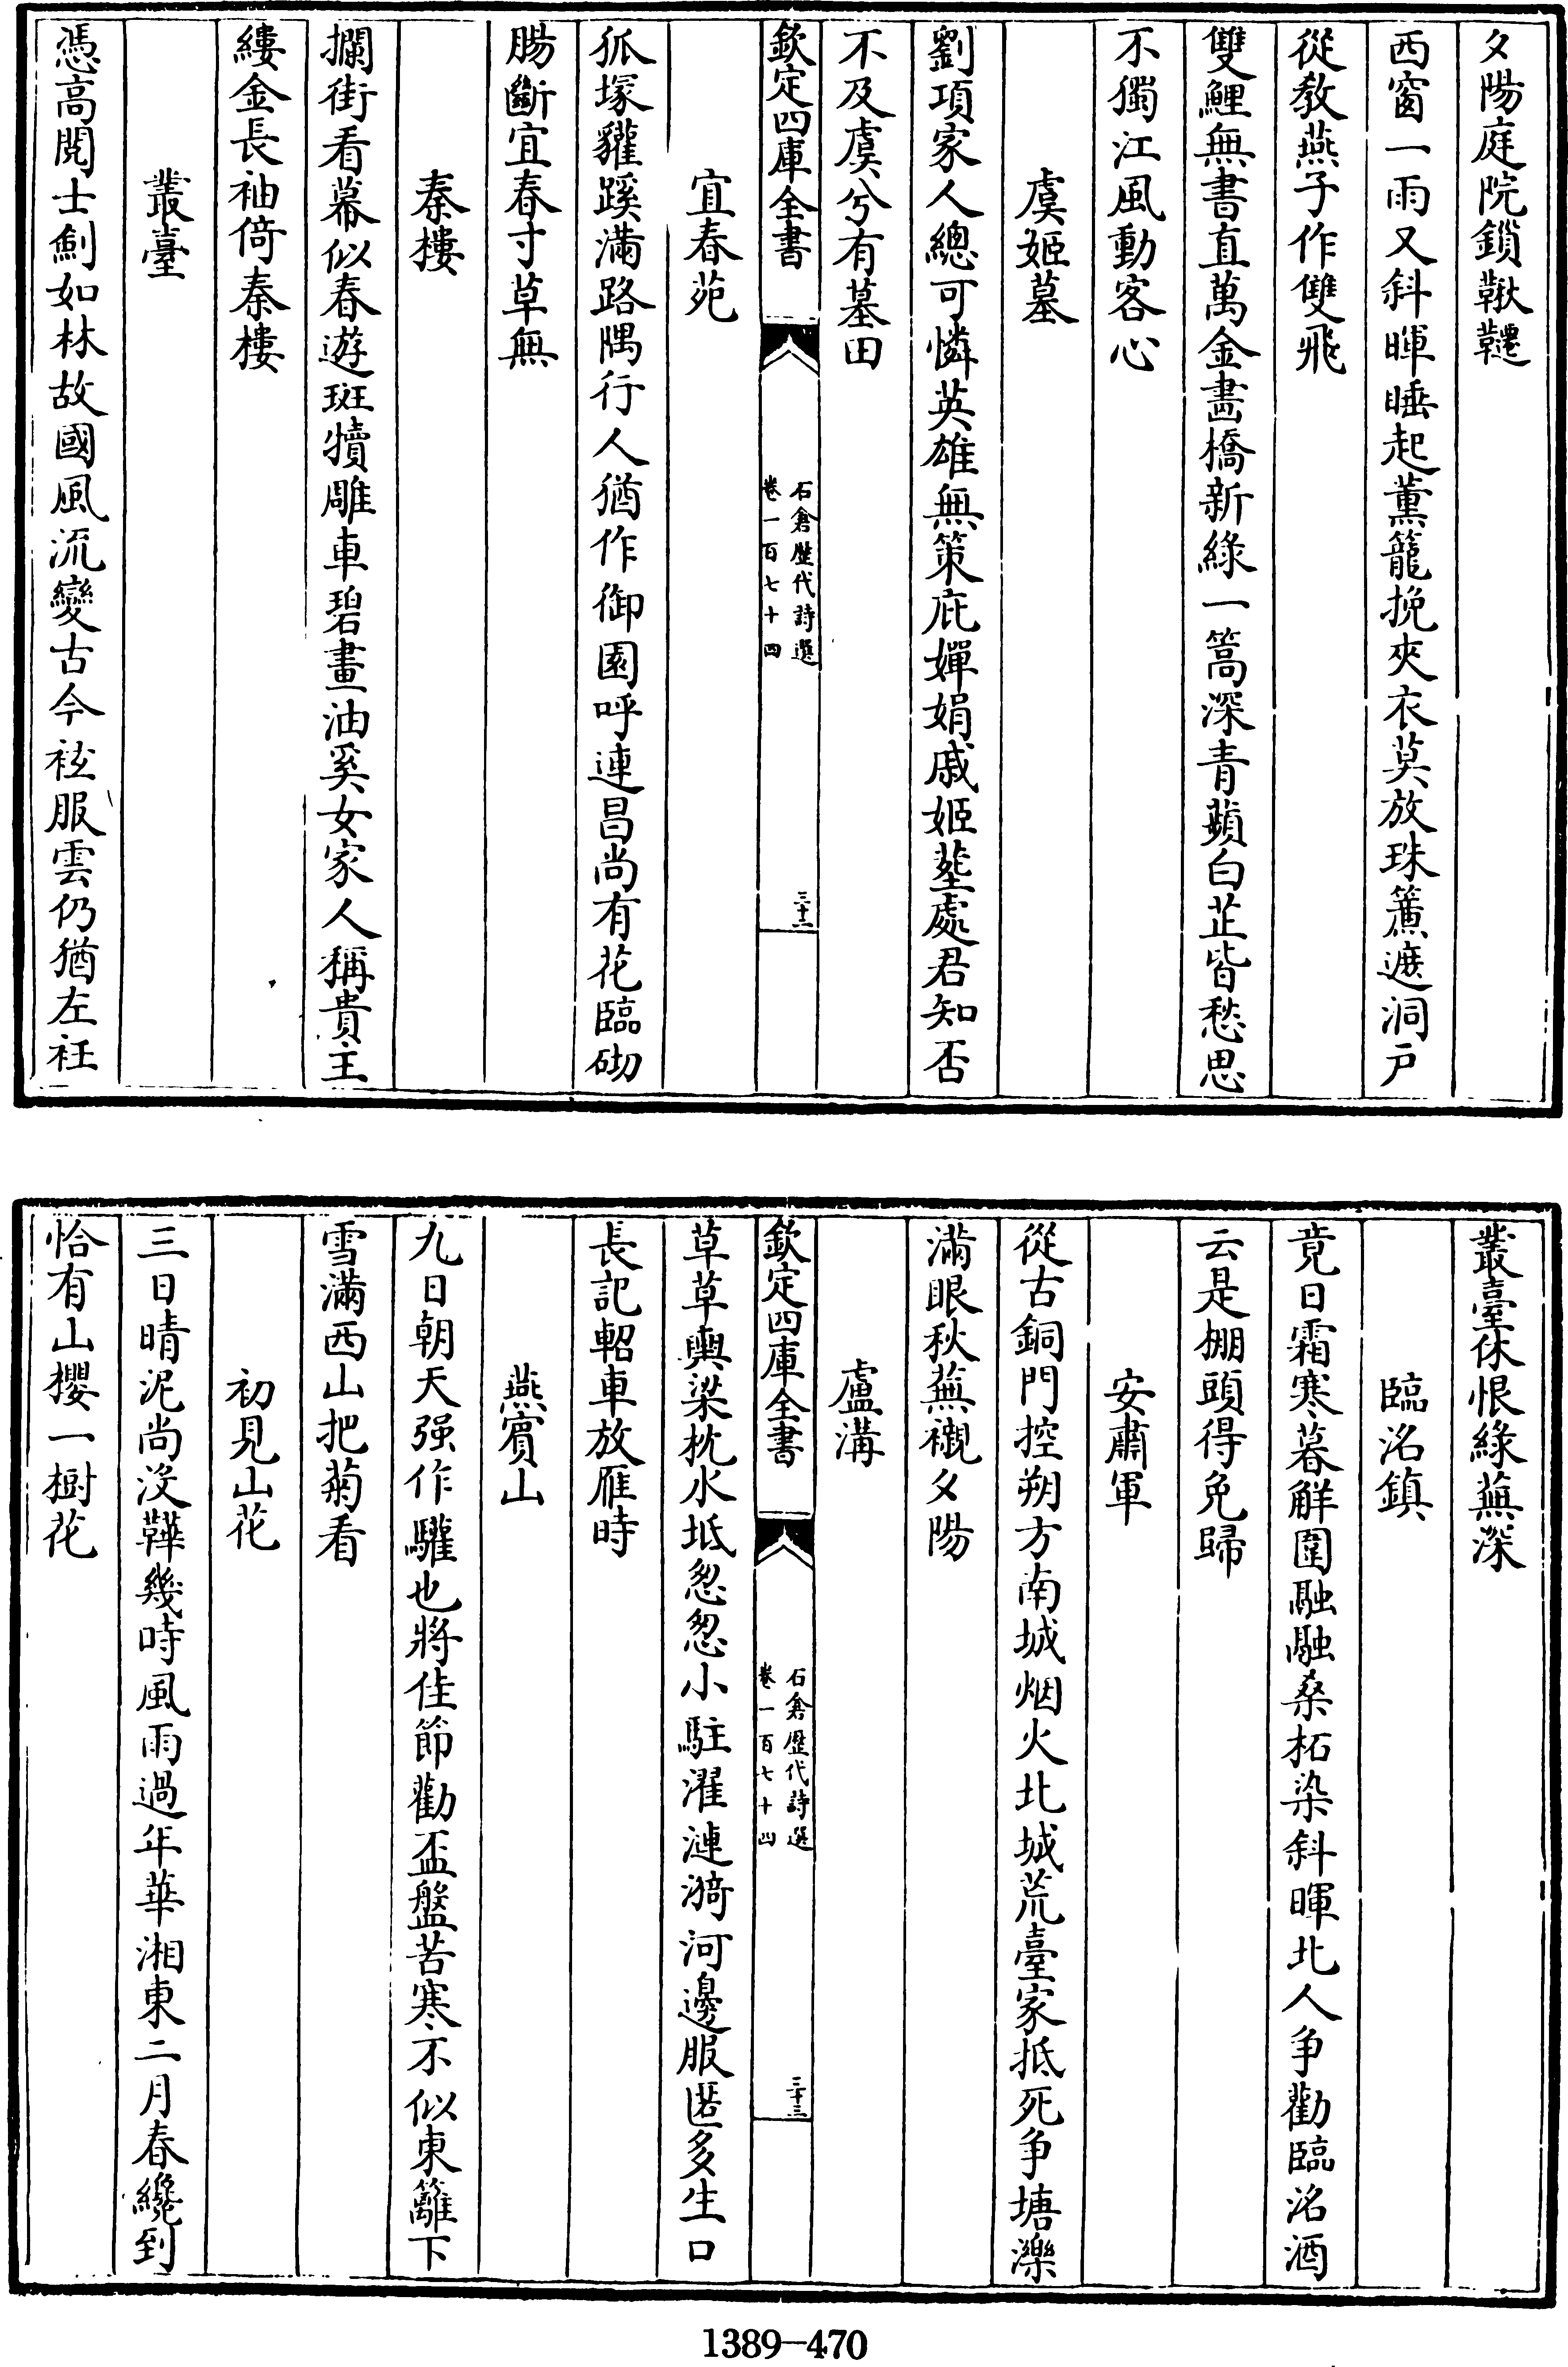 夕陽庭院鎖鞦韆
西窗一雨又斜暉睡起薰籠挽夾衣莫放珠簾遮洞戸
從教燕子作雙飛
雙鯉無書直萬金畵橋新綠一篙深青蘋白芷皆愁思
不獨江風動客心
虞姬墓
劉項家人總可憐英雄無策庇嬋娟戚姬塟處君知否
不及虞兮有墓田
欽定四庫全書
石倉歷代詩選
卷一百七十四
三十二
宜春苑
狐塚貛蹊滿路隅行人猶作御園呼連昌尚有花臨砌
腸斷宜春寸草無
秦樓
攔街看幕似春遊斑犢雕車碧畫油奚女家人稱貴主
縷金長袖倚秦樓
叢臺
憑高閱士劍如林故國風流變古今袨服雲仍猶左衽
叢臺休恨綠蕪深
臨洺鎮
竟日霜寒暮解圍融融桑柘染斜暉北人争勸臨洺酒
云是棚頭得免歸
安肅軍
從古銅門控朔方南城烟火北城荒臺家抵死争塘濼
滿眼秋蕪襯夕陽
盧溝
欽定四庫全書
石倉歷代詩選
卷一百七十四
三十三
草草輿梁枕水坻怱怱小駐濯漣漪河邊服匿多生口
長記軺車放雁時
燕賓山
九日朝天强作驩也將佳節勸盃盤苦寒不似東籬下
雪滿西山把菊看
初見山花
三日晴泥尚没鞾幾時風雨過年華湘東二月春纔到
恰有山櫻一樹花
1389—470